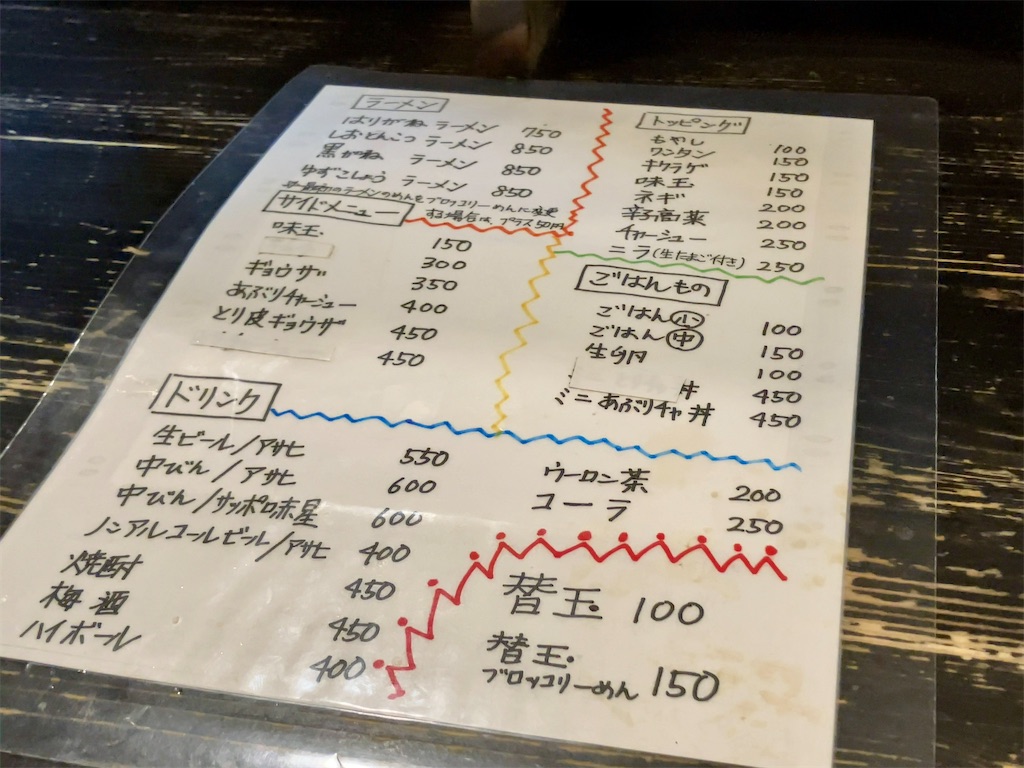 ラーメン
はりがねラーメン 750
しおとんこつ ラーメン 850
黒がね ラーメン 850
ゆずこしょう ラーメン 850
のラーメンのめんをブロッコリーめんに変更
する場合は プラス50円
サイドメニュー
味玉 150
300
ギョウザ 350
あぶりチャーシュー 400
とり皮ギョウザ 450
450
トッピング
もやし 100
ワンタン 150
キクラゲ 150
味玉 150
ネギ 200
辛子高菜 200
チャーシュー 250
ニラ(生たまご付き) 250
ごはんもの
ごはん小 100
ごはん中 150
生卵 100
丼 450
ミニあぶりチャ丼 450
ドリンク
生ビール/アサヒ 550
中びん/アサヒ 600
中びん/サッポロ赤星 600
ノンアルコールビール/アサヒ 400
焼酎 450
梅酒 450
ハイボール 400
ウーロン茶 200
コーラ 250
替玉 100
替玉
ブロッコリーめん 150